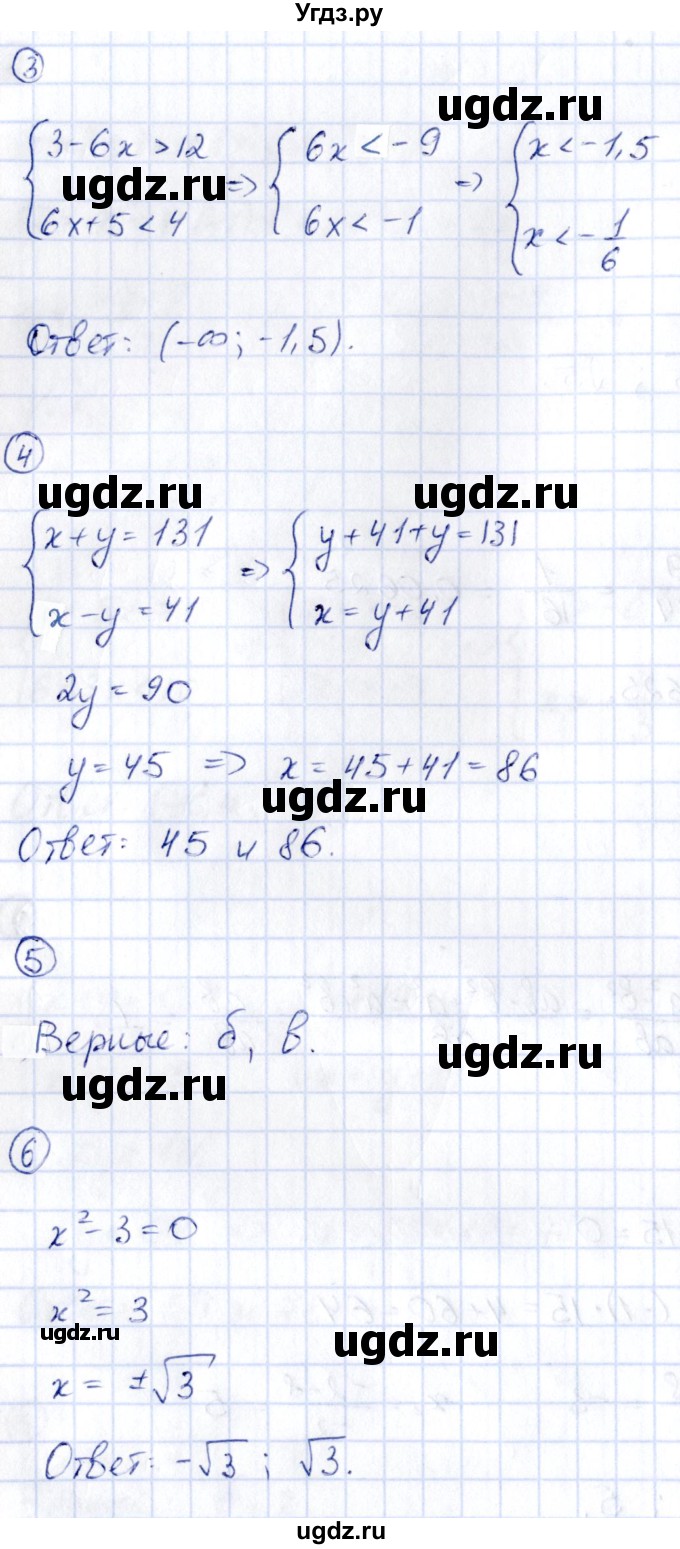 Угдз.ру
3
ugdz.ru
3-6x>12 => 6x<-9 => x<-1,5
ugdz.ru
6x+5<4 6x<-1 x<-1/6
Ответ: (-∞; -1,5).
4
ugdz.ru ugdz.ru
x+y=131 => y+41+y=131
x-y=41 x=y+41
2y=90
y=45 => x=45+41=86
ugdz.ru
Ответ: 45 и 86.
5
Верные: б, в.
ugdz.ru
ugdz.ru
6
x²-3=0
x²=3
ugdz.ru ugdz.ru
x=±√3
Ответ: -√3; √3.
ugdz.ru